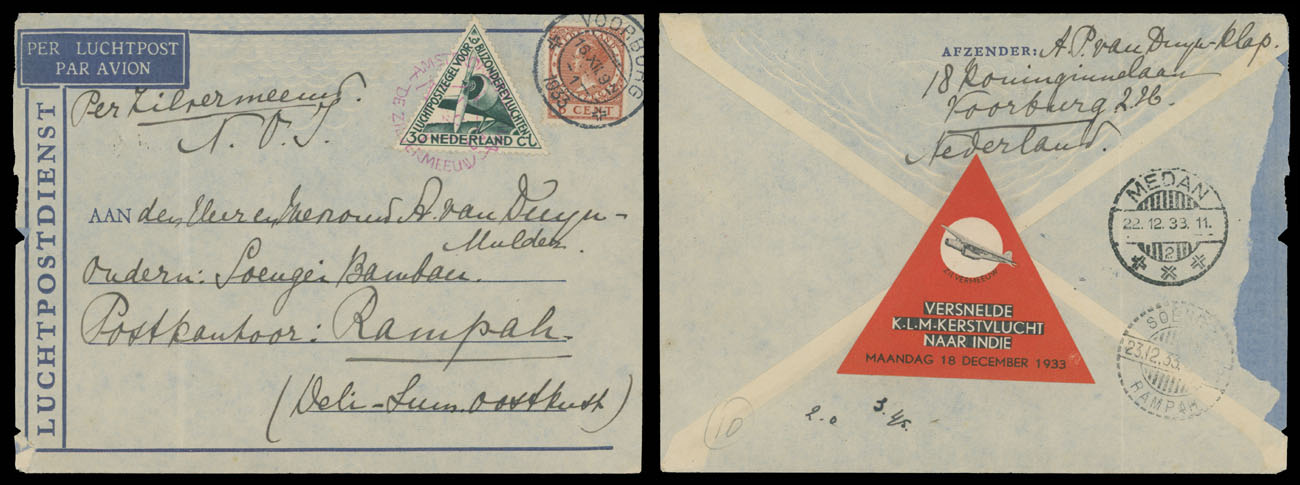 PER LUCHTPOST
PAR AVION
LUCHTPOSTDIENST
Per Zilvermeeuw.
N.O.I.
LUCHTPOSTZEGEL VOOR
BIJZONDERE VLUCHTEN
30 NEDERLAND CT
CENT
VOORBURG
1933
AAN den Heer en Mevrouw A. van Duyn-
Mulder.
Ondern: Soengei Bamban.
Postkantoor: Rampah.
(Deli-Sum. oostkust)
AFZENDER: A.P. van Duyn-Klap.
18 Koninginnelaan
Voorburg Z.H.
Nederland.
MEDAN
22.12.33.11.
2
ZILVERMEEUW
VERSNELDE
K-L-M-KERSTVLUCHT
NAAR INDIE
MAANDAG 18 DECEMBER 1933
23.12.33.
RAMPAH
10
2.0